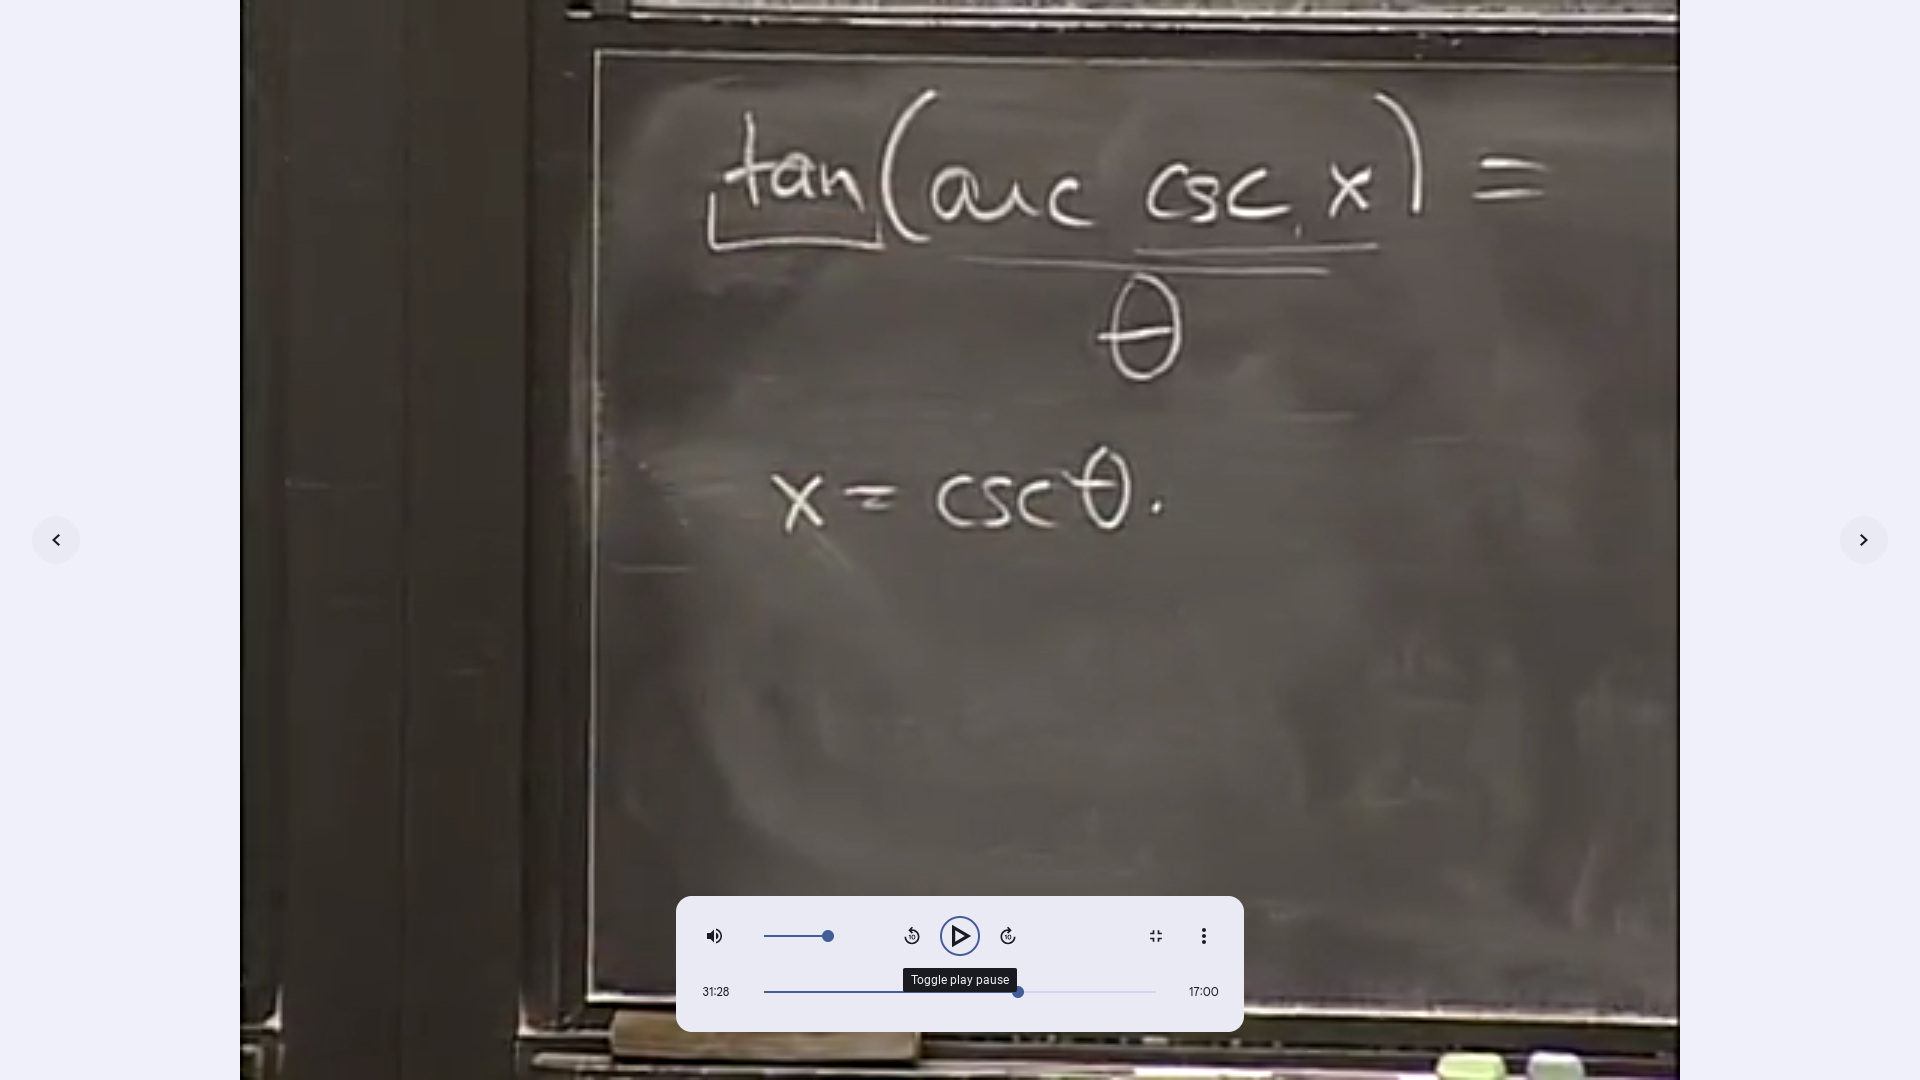 tan(arc csc x) =
θ
x = csc θ.
Toggle play pause
31:28
17:00